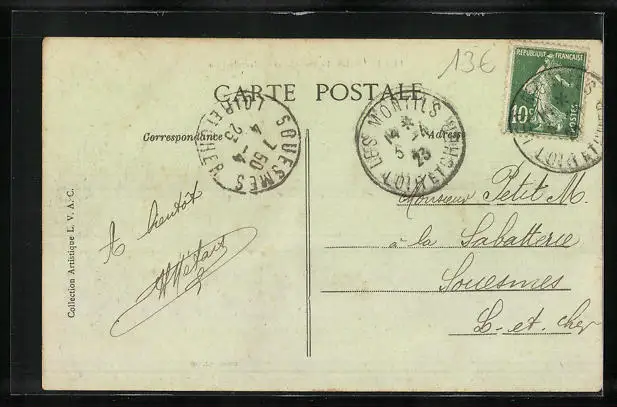 13€
CARTE POSTALE
REPUBLIQUE FRANÇAISE
10c
POSTES
LOIR ET CHER
Correspondance
Adresse
SOUESMES
LOIR ET CHER
7 50
4 -4
23
LES MONTILS
LOIR ET CHER
14 *
5 -4
23
Monsieur Petit M.
à la Sabatterie
Souesmes
L-et-Cher
A bientôt
Collection Artistique L. V. A. C.